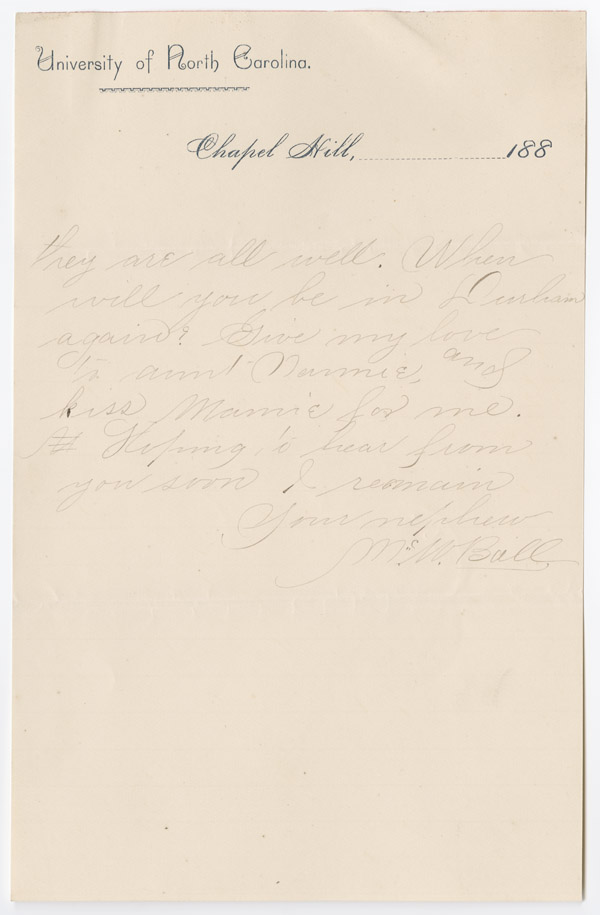 University of North Carolina.
Chapel Hill, 188
they are all well. When
will you be in Durham
again? Give my love
to aunt Nannie, and
kiss Mamie for me.
Hoping to hear from
you soon I remain
Your nephew
W. Ball